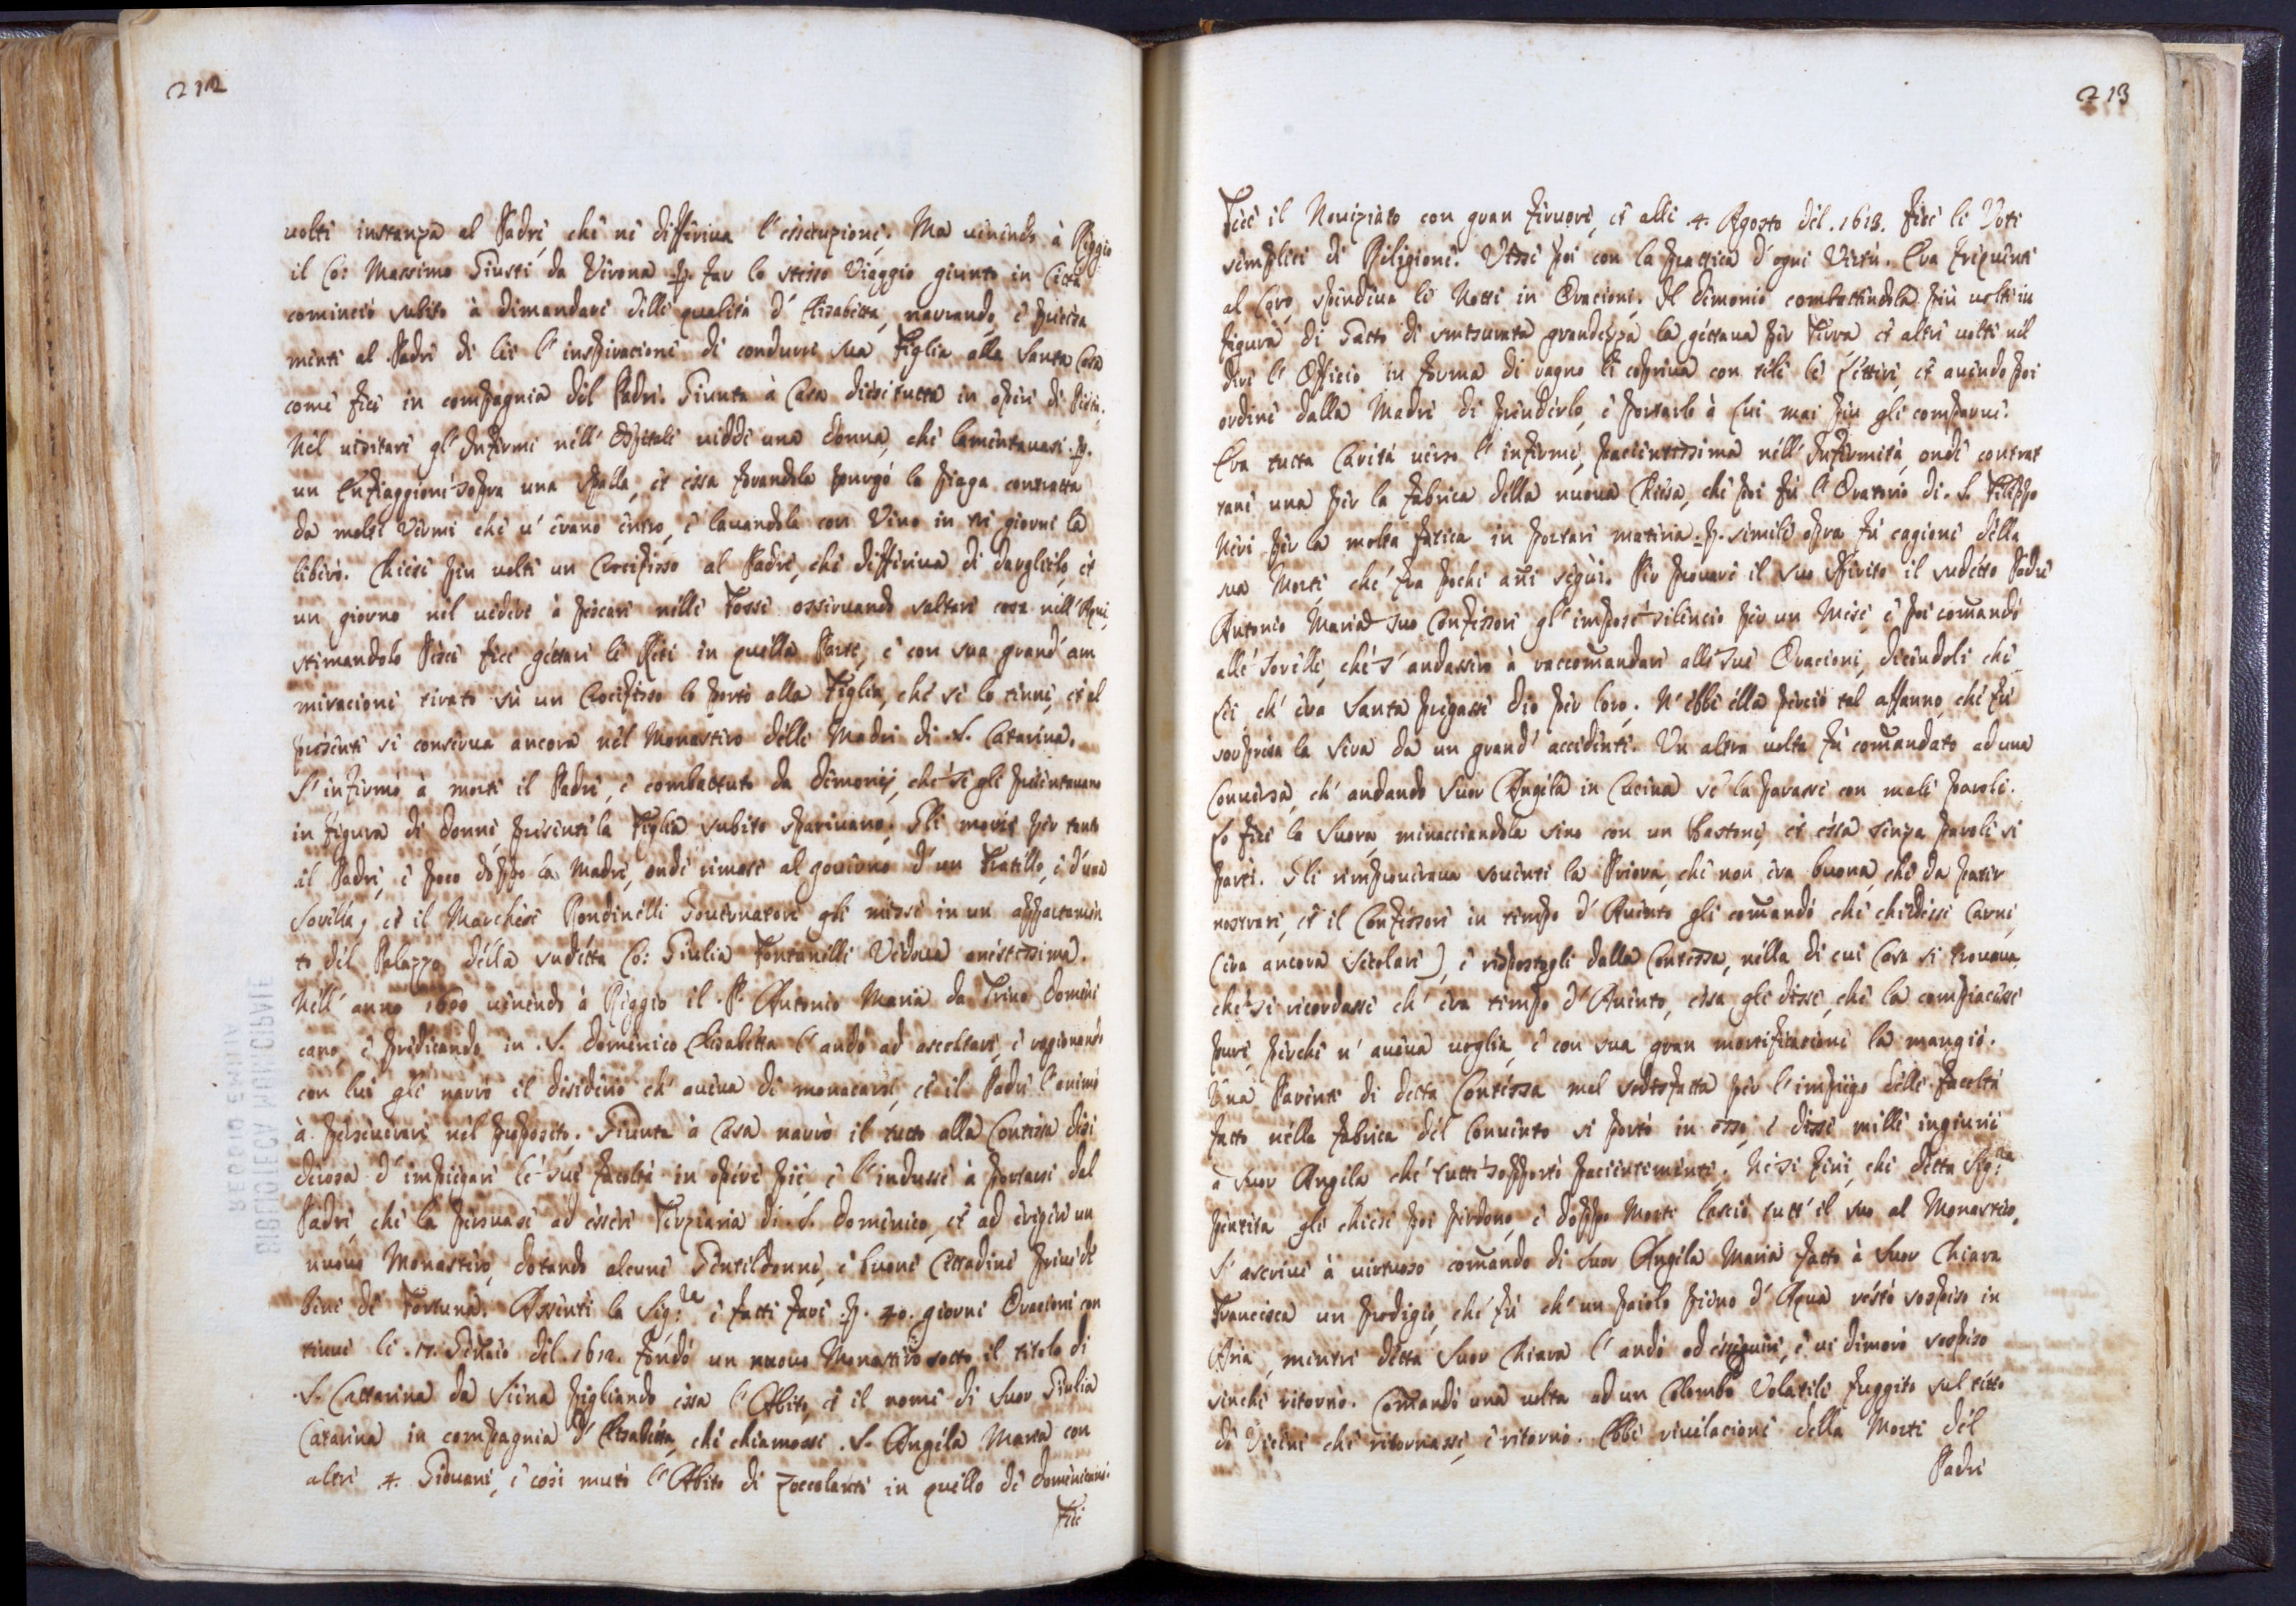 212
volte instanza al Padre, che ne differiva l'essecuzione. Ma venendo à Reggio
il Co: Massimo Giusti da Verona p. far lo stesso Viaggio giunto in Città
cominciò subito à dimandare delle qualità d'Elisabetta, narrando, e precisa
mente al Padre di lei l'inspiracione di condurre sua Figlia alla Santa Casa
come fece in compagnia del Padre. Giunta à Casa diessi tutta in opere di Pietà.
Nel visitare gl'Infermi nell'Ospitale vidde una donna, che lamentavasi p.
un Enfiaggione sopra una Spalla, et essa forandola purgò la piaga contratta
da molti Vermi che v'erano entro, e lavandola con Vino in tre giorni la
liberò. Chiese più volte un Crocifisso al Padre, che differiva di darglielo, et
un giorno nel vedere à pescare nelle Fosse osservando saltare cosa nell'Aque,
stimandolo Pesce fece gettare le Reti in quella Parte, e con sua grand'am
miracione tirato sù un Crocifisso lo portò alla Figlia, che se lo tenne, et al
presente si conserva ancora nel Monastero delle Madri di S. Catarina.
S'infermò à morte il Padre, e combattuto da Demonij, che se gli presentavano
in figura di donne, presente la Figlia subito sparivano. Gli morì per tanto
il Padre, e poco doppo la Madre, onde rimase al governo d'un Fratello, e d'una
Sorella, et il Marchese Rondinelli Governatore gli misse in un appartamen
to del Palazzo della sudetta Co: Giulia Fontanelli Vedova onestissima.
Nell'anno 1600 venendo à Reggio il P. Antonio Maria da Trino Domeni
cano, e predicando in S. Domenico Elisabetta l'andò ad ascoltare, e ragionando
con lui gli narrò il desiderio ch'aveva di monacarsi, et il Padre l'animò
à perseverare nel proposito. Giunta à Casa narrò il tutto alla Contessa desi
derosa d'impiegare le sue facoltà in opere pie, e l'indusse à portarsi dal
Padre, che la persuase ad essere Terziaria di S. Domenico, et ad erigere un
nuovo Monastero, dotando alcune Gentildonne, e buone Cittadine prive di
Beni di Fortuna. Assentì la Sig:ra e fatti fare p. 40. giorni Oracioni con
tinue li 17. Genaio del 1612. fondò un nuovo Monastero sotto il titolo di
S. Cattarina da Siena pigliando essa l'Abito, et il nome di Suor Giulia
Catarina in compagnia d'Elisabetta, che chiamossi S. Angela Maria con
altre 4. Giovani, e così mutò l'Abito di Zoccolanti in quello de Domenicani.
Fece
213
Fece il Noviziato con gran fervore, et alli 4. Agosto del 1613. fece li Voti
semplici di Religione. Visse poi con la prattica d'ogni Virtù. Era frequente
al Coro, spendeva le Notti in Oracione. Il Demonio combattendola più volte in
figura di Gatto di smisurata grandezza la gettava per Terra et altre volte nel
dire l'Officio in forma di ragno le copriva con tele le Lettere, et avendo poi
ordine dalla Madre di prenderlo, e portarlo à Lei mai più gli comparve.
Era tutta Carità verso l'inferme, pacientissima nell'Infermità, onde contrat
tane una per la fabrica della nuova Chiesa, che poi fù l'Oratorio di S. Filippo
Neri per la molta fatica in portare materia p. simile opra fù cagione della
sua Morte che frà pochi añi seguì. Per provare il suo Spirito il sudetto Padre
Antonio Maria suo Confessore gl'impose silencio per un Mese, e poi comandò
alle Sorelle, che s'andassero à raccomandare alle sue Oracioni, dicendoli che
Lei ch'era Santa pregasse Dio per loro. N'ebbe ella perciò tal affanno che fù
sorpresa la sera da un grand'accidente. Un altra volta fù comandato ad una
Conversa, ch'andando Suor Angela in Cucina se la parasse con male parole.
Lo fece la Suora, minacciandola sino con un Bastone, et essa senza parole si
partì. Gli rimproverava sovente la Priora, che non era buona, che da pater
nostrare, et il Confessore in tempo d'Avento gli comandò che chiedesse Carne,
(era ancora Secolare), e rispostogli dalla Contessa, nella di cui Casa si trovava,
che si ricordasse ch'era tempo d'Avento, essa gli disse, che la compiacesse
pure, perche n'aveva voglia, e con sua gran mortificacione la mangiò.
Una Parente di detta Contessa mal sodisfatta per l'impiego delle facoltà
fatto nella fabrica del Convento si portò in esso, e disse mille ingiurie
à Suor Angela che tutte sopportò pacientemente. Ne si finì, che detta Sig:ra
pentita gli chiese poi perdono, e doppo Morte lasciò tutt'il suo al Monastero.
S'ascrive à virtuoso comando di Suor Angela Maria fatto à Suor Chiara
Francesca un prodigio, che fù ch'un paiolo pieno d'Aqua restò sospeso in
Aria, mentre detta Suor Chiara l'andò ad esseguire, e vi dimorò sospeso
sinche ritornò. Comandò una volta ad un Colombo Volatile fuggito sul tetto
de Vicini che ritornasse, e ritornò. Ebbe rivelacione della Morte del
Padre
BIBLIOTECA MUNICIPALE
REGGIO EMILIA